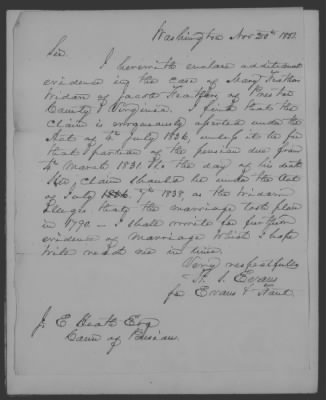 Washington Nov 20th 1851
Sir
I herewith enclose additional
evidence in the case of Mary
Widow of Jacob of
County Virginia. I find that the
Claim is erroneously asserted under the
Act of 4th July 1836, unless it be for
that portion of the pension due from
4th March 1831 to the day of his death
Her Claim should be under the Act
of July 7th 1838, as the widow
alleges that the marriage took place
in 1790 – I shall write for further
evidence of marriage which I hope
will reach me in time.
Very respectfully
Evans
for Evans &
J. E. Heath Esq
Comr of Pensions